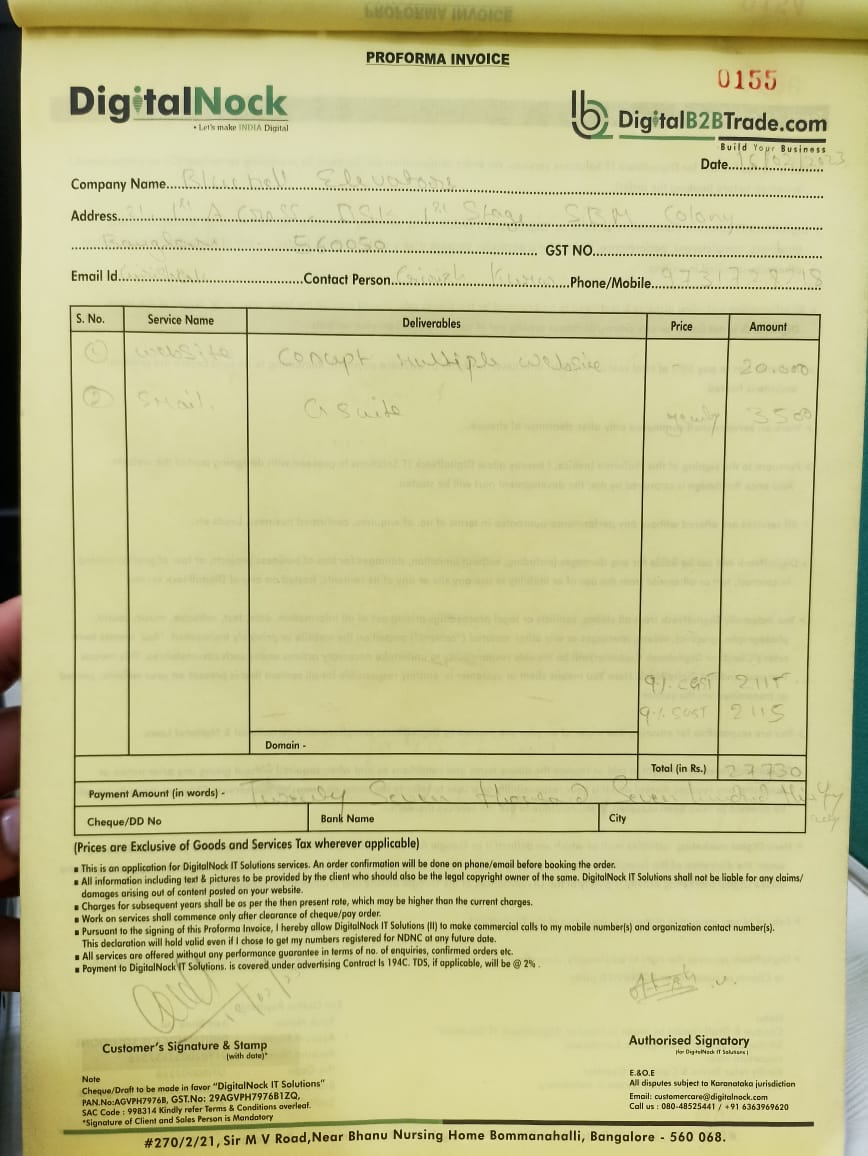 PROFORMA INVOICE
0155
DigitalNock
• Let's make INDIA Digital
DigitalB2BTrade.com
Build Your Business
Date 16/02/2023
Company Name Elevators
Address 1st A Cross, BSK 1st Stage SBM Colony
560050 GST NO.
Email Id. Contact Person Kumar Phone/Mobile
S. No. Service Name Deliverables Price Amount
① website Concept Multiple Website - 20.000
② Email. G suite yearly 3500
9% CGST 2115
9% SGST 2115
Domain -
Total (in Rs.) 27730
Payment Amount (in words) - Twenty Seven thousand Seven hundred thirty
Cheque/DD No Bank Name City
(Prices are Exclusive of Goods and Services Tax wherever applicable)
▪ This is an application for DigitalNock IT Solutions services. An order confirmation will be done on phone/email before booking the order.
▪ All information including text & pictures to be provided by the client who should also be the legal copyright owner of the same. DigitalNock IT Solutions shall not be liable for any claims/
damages arising out of content posted on your website.
▪ Charges for subsequent years shall be as per the then present rate, which may be higher than the current charges.
▪ Work on services shall commence only after clearance of cheque/pay order.
▪ Pursuant to the signing of this Proforma Invoice, I hereby allow DigitalNock IT Solutions (II) to make commercial calls to my mobile number(s) and organization contact number(s).
This declaration will hold valid even if I chose to get my numbers registered for NDNC at any future date.
▪ All services are offered without any performance guarantee in terms of no. of enquiries, confirmed orders etc.
▪ Payment to DigitalNock IT Solutions. is covered under advertising Contract Is 194C. TDS, if applicable, will be @ 2% .
Customer's Signature & Stamp
(with date)*
Authorised Signatory
(for DigitalNock IT Solutions)
Note
Cheque/Draft to be made in favor "DigitalNock IT Solutions"
PAN.No:AGVPH7976B, GST.No: 29AGVPH7976B1ZQ,
SAC Code : 998314 Kindly refer Terms & Conditions overleaf.
*Signature of Client and Sales Person is Mandatory
E.&O.E
All disputes subject to Karanataka jurisdiction
Email: customercare@digitalnock.com
Call us : 080-48525441 / +91 6363969620
#270/2/21, Sir M V Road,Near Bhanu Nursing Home Bommanahalli, Bangalore - 560 068.